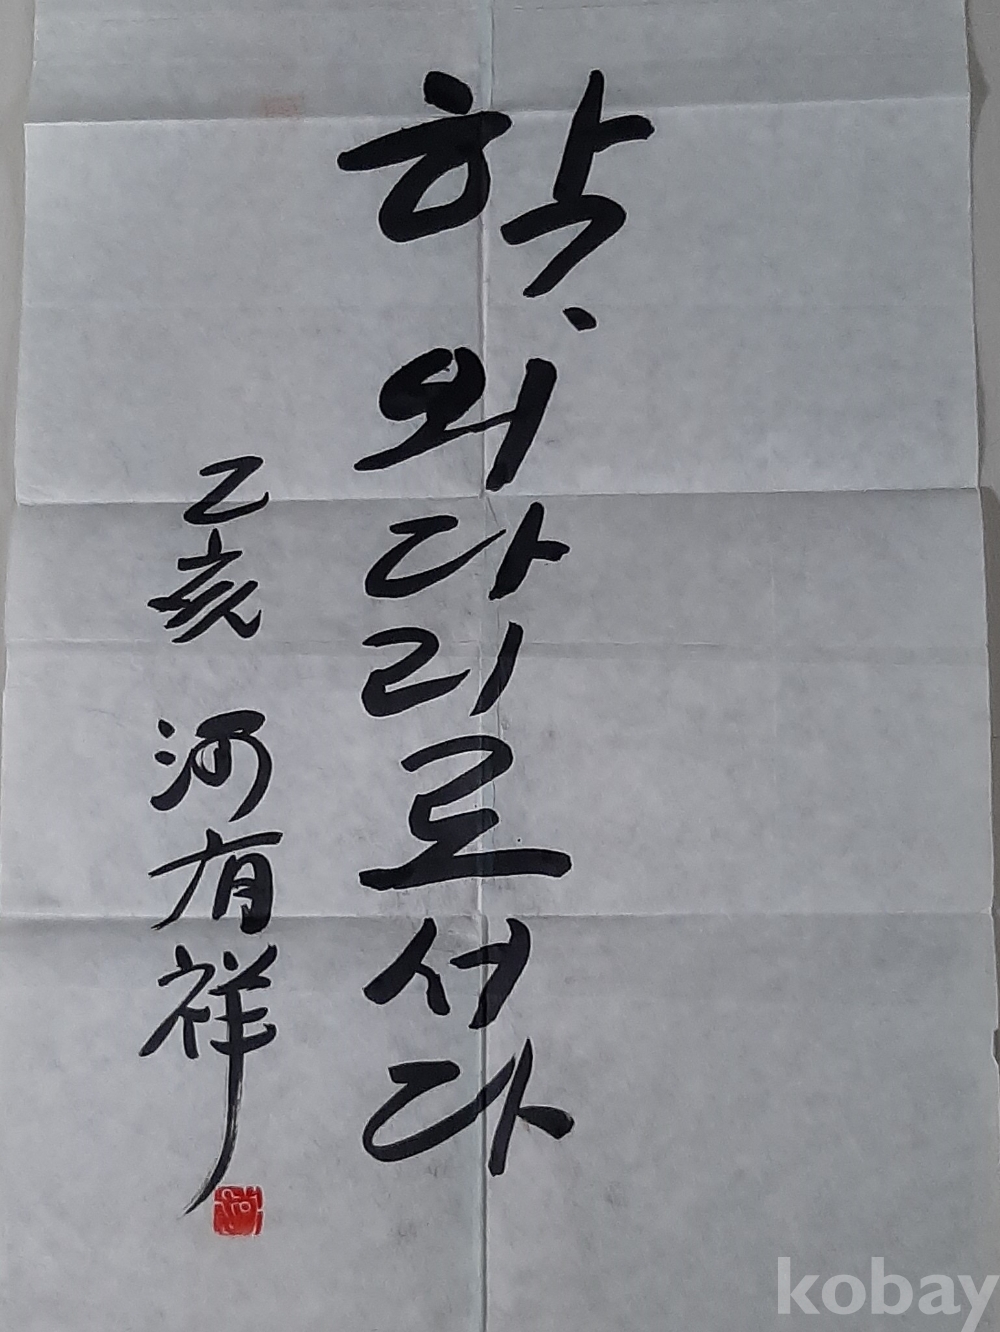 학, 외다리로 서다
乙亥 河有祥
kobay